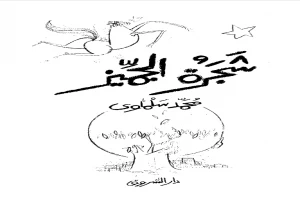 شجرة الجميز
محمد سلماوى
دار الشروق